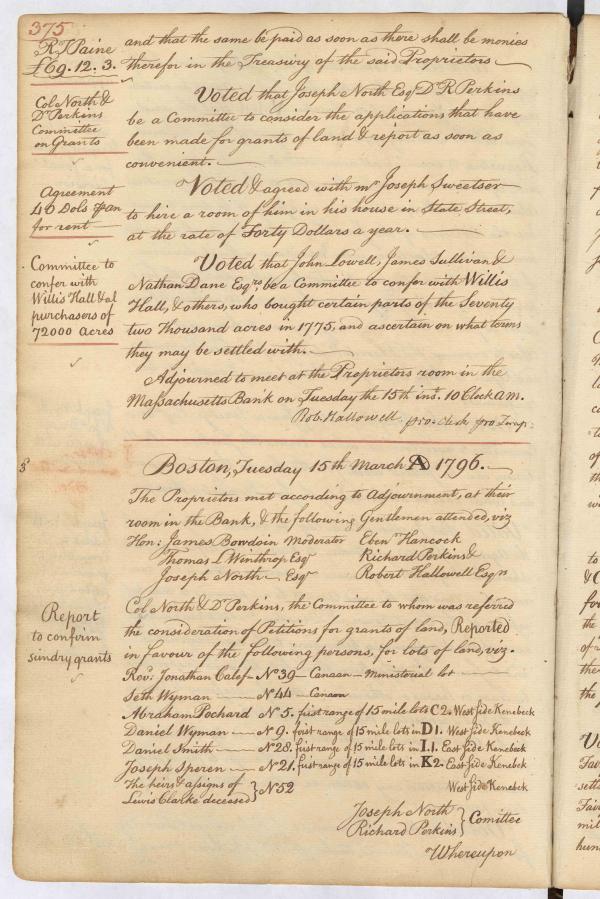 375
R T Paine
£69. 12. 3.
and that the same be paid as soon as there shall be monies
therefor in the Treasury of the said Proprietors
Col North &
Dr Perkins
Committee
on Grants
Voted that Joseph North Esq Dr R Perkins
be a Committee to consider the applications that have
been made for grants of land & report as soon as
convenient.
Agreement
40 Dols pr an
for rent
Voted & agreed with mr Joseph Sweetser
to hire a room of him in his house in State Street,
at the rate of Forty Dollars a year.
Committee to
confer with
Willis Hall & al
purchasers of
72000 Acres
Voted that John Lowell, James Sullivan &
Nathan Dane Esqrs, be a Committee to confer with Willis
Hall, & others, who bought certain parts of the Seventy
two Thousand acres in 1775, and ascertain on what terms
they may be settled with.
Adjourned to meet at the Proprietors room in the
Massachusetts Bank on Tuesday the 15th inst. 10 Clock am.
Rob. Hallowell pro. Clerk pro Temp:
Boston, Tuesday 15th March A D 1796.
The Proprietors met according to Adjournment, at their
room in the Bank, & the following Gentlemen attended, viz
Hon: James Bowdoin Moderator Eben Hancock
Thomas L Winthrop Esqr Richard Perkins &
Joseph North Esqr Robert Hallowell Esqrs
Report
to confirm
sundry grants
Col North & Dr Perkins, the Committee to whom was referred
the consideration of Petitions for grants of land, Reported
in favour of the following persons, for lots of land, viz.
Rev: Jonathan Calef No 39 - Canaan - Ministerial lot
Seth Wyman No 44 - Canaan
Abraham Pochard No 5. first range of 15 mile lots C 2. West side Kenebeck
Daniel Wyman No 9. first range of 15 mile lots in D 1. West side Kenebeck
Daniel Smith No 28. first range of 15 mile lots in I. 1. East side Kenebeck
Joseph Speren No 21. first range of 15 mile lots in K 2. East side Kenebeck
The heirs & assigns of
Lewis Clarke deceased } No 52 West side Kenebek
Joseph North
Richard Perkins } Comittee
Whereupon